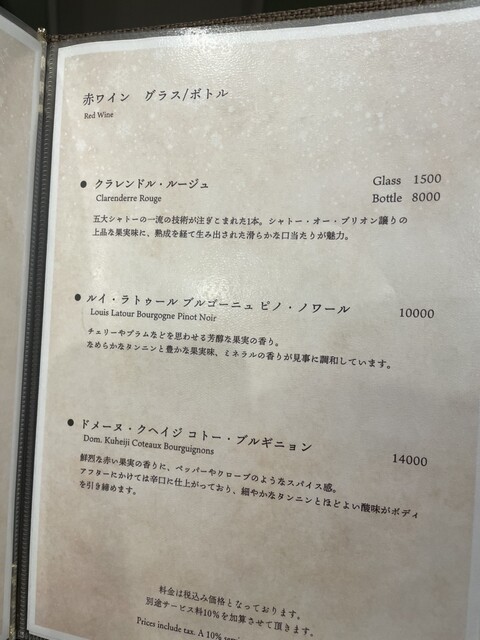 赤ワイン グラス/ボトル
Red Wine
● クラレンドル・ルージュ Glass 1500
Clarenderre Rouge Bottle 8000
五大シャトーの一流の技術が注ぎこまれた1本。シャトー・オー・ブリオン譲りの
上品な果実味に、熟成を経て生み出された滑らかな口当たりが魅力。
● ルイ・ラトゥール ブルゴーニュ ピノ・ノワール 10000
Louis Latour Bourgogne Pinot Noir
チェリーやプラムなどを思わせる芳醇な果実の香り。
なめらかなタンニンと豊かな果実味、ミネラルの香りが見事に調和しています。
● ドメーヌ・クヘイジ コトー・ブルギニョン 14000
Dom. Kuheiji Coteaux Bourguignons
鮮烈な赤い果実の香りに、ペッパーやクローブのようなスパイス感。
アフターにかけては辛口に仕上がっており、細やかなタンニンとほどよい酸味がボディ
を引き締めます。
料金は税込み価格となっております。
別途サービス料10%を加算させて頂きます。
Prices include tax. A 10%